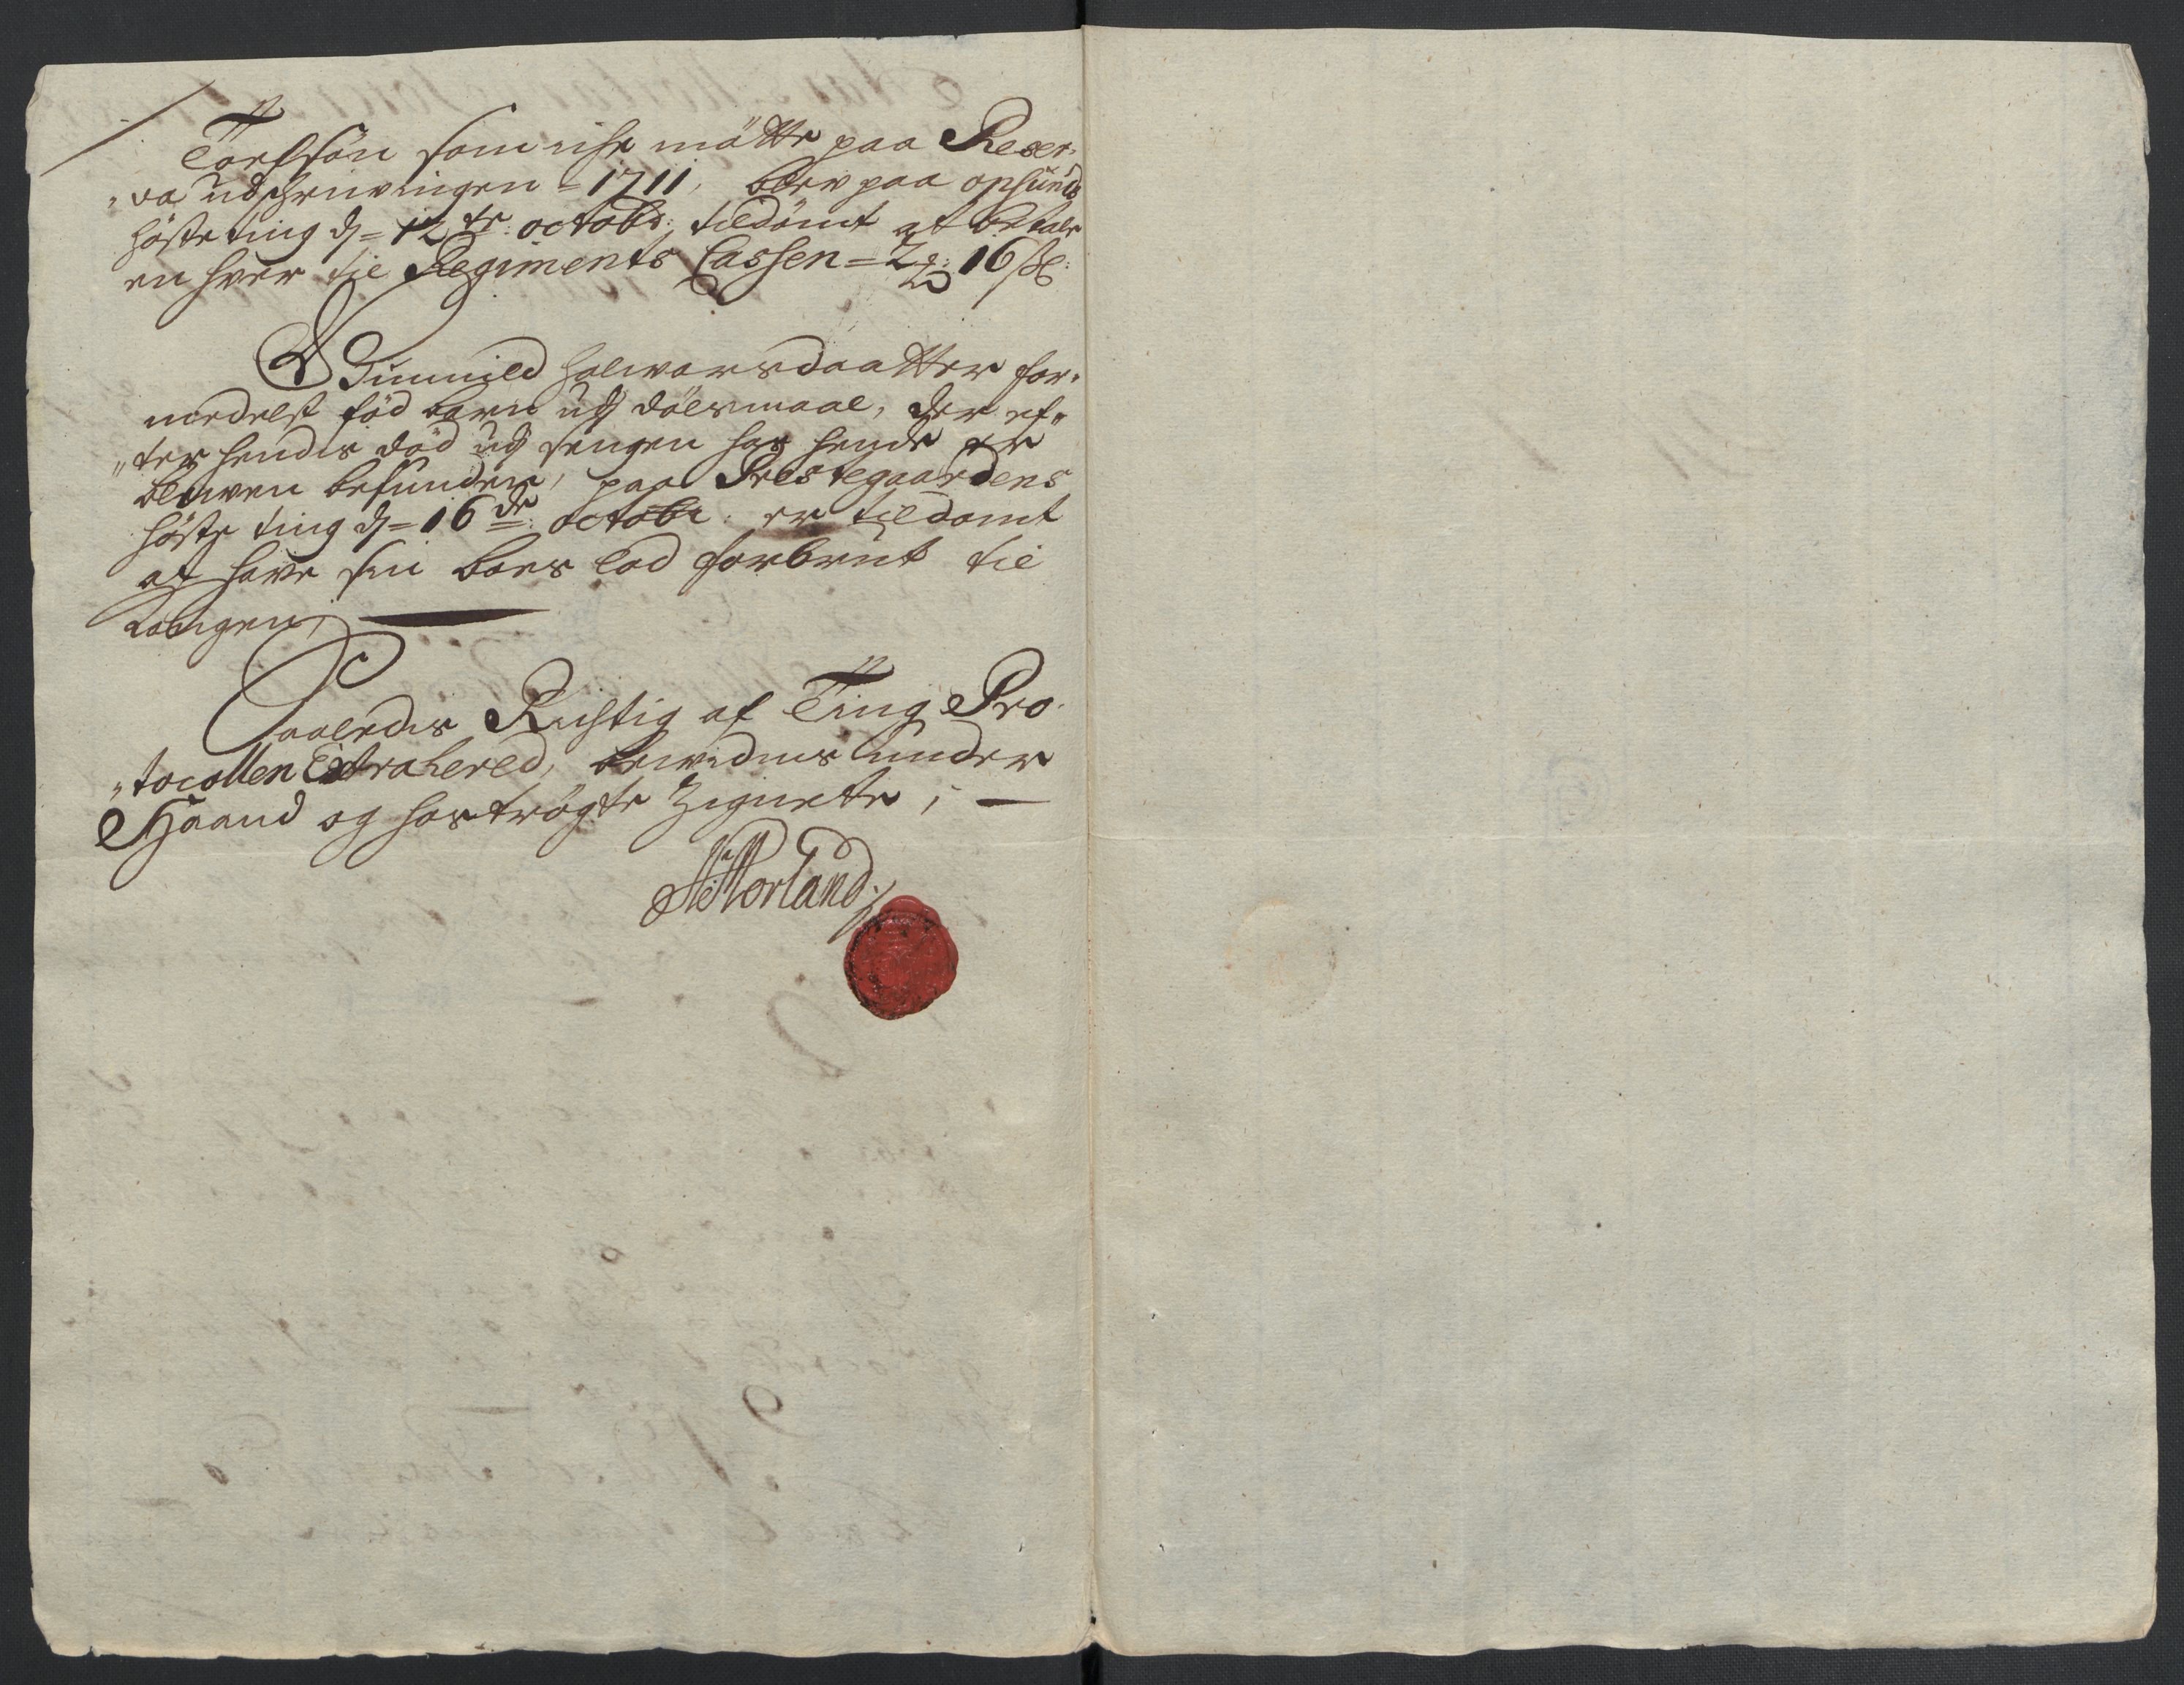 Torlsøn som iche mötte paa Reser-
„va udschrivingen = 1711, blev paa opsunds
höste ting d = 12te octobr: tildömt at betale
en hver til Regiments Cassen = 2 16 s
Gunnild halvorsdaatter for„
medelst fød barn udj dölsmaal, der ef„
„ter hendis död udj sengen hos hende er
bleven befunden, paa Prestegaardens
höste ting d = 16de octobr: er tildömt
at have sin boes lod forbrut til
Kongen,
Saaledis Richtig af Ting Pro-
„tocollen Extrahered, bevidnis under
Haand og hoströgte Zignette, —
Morland